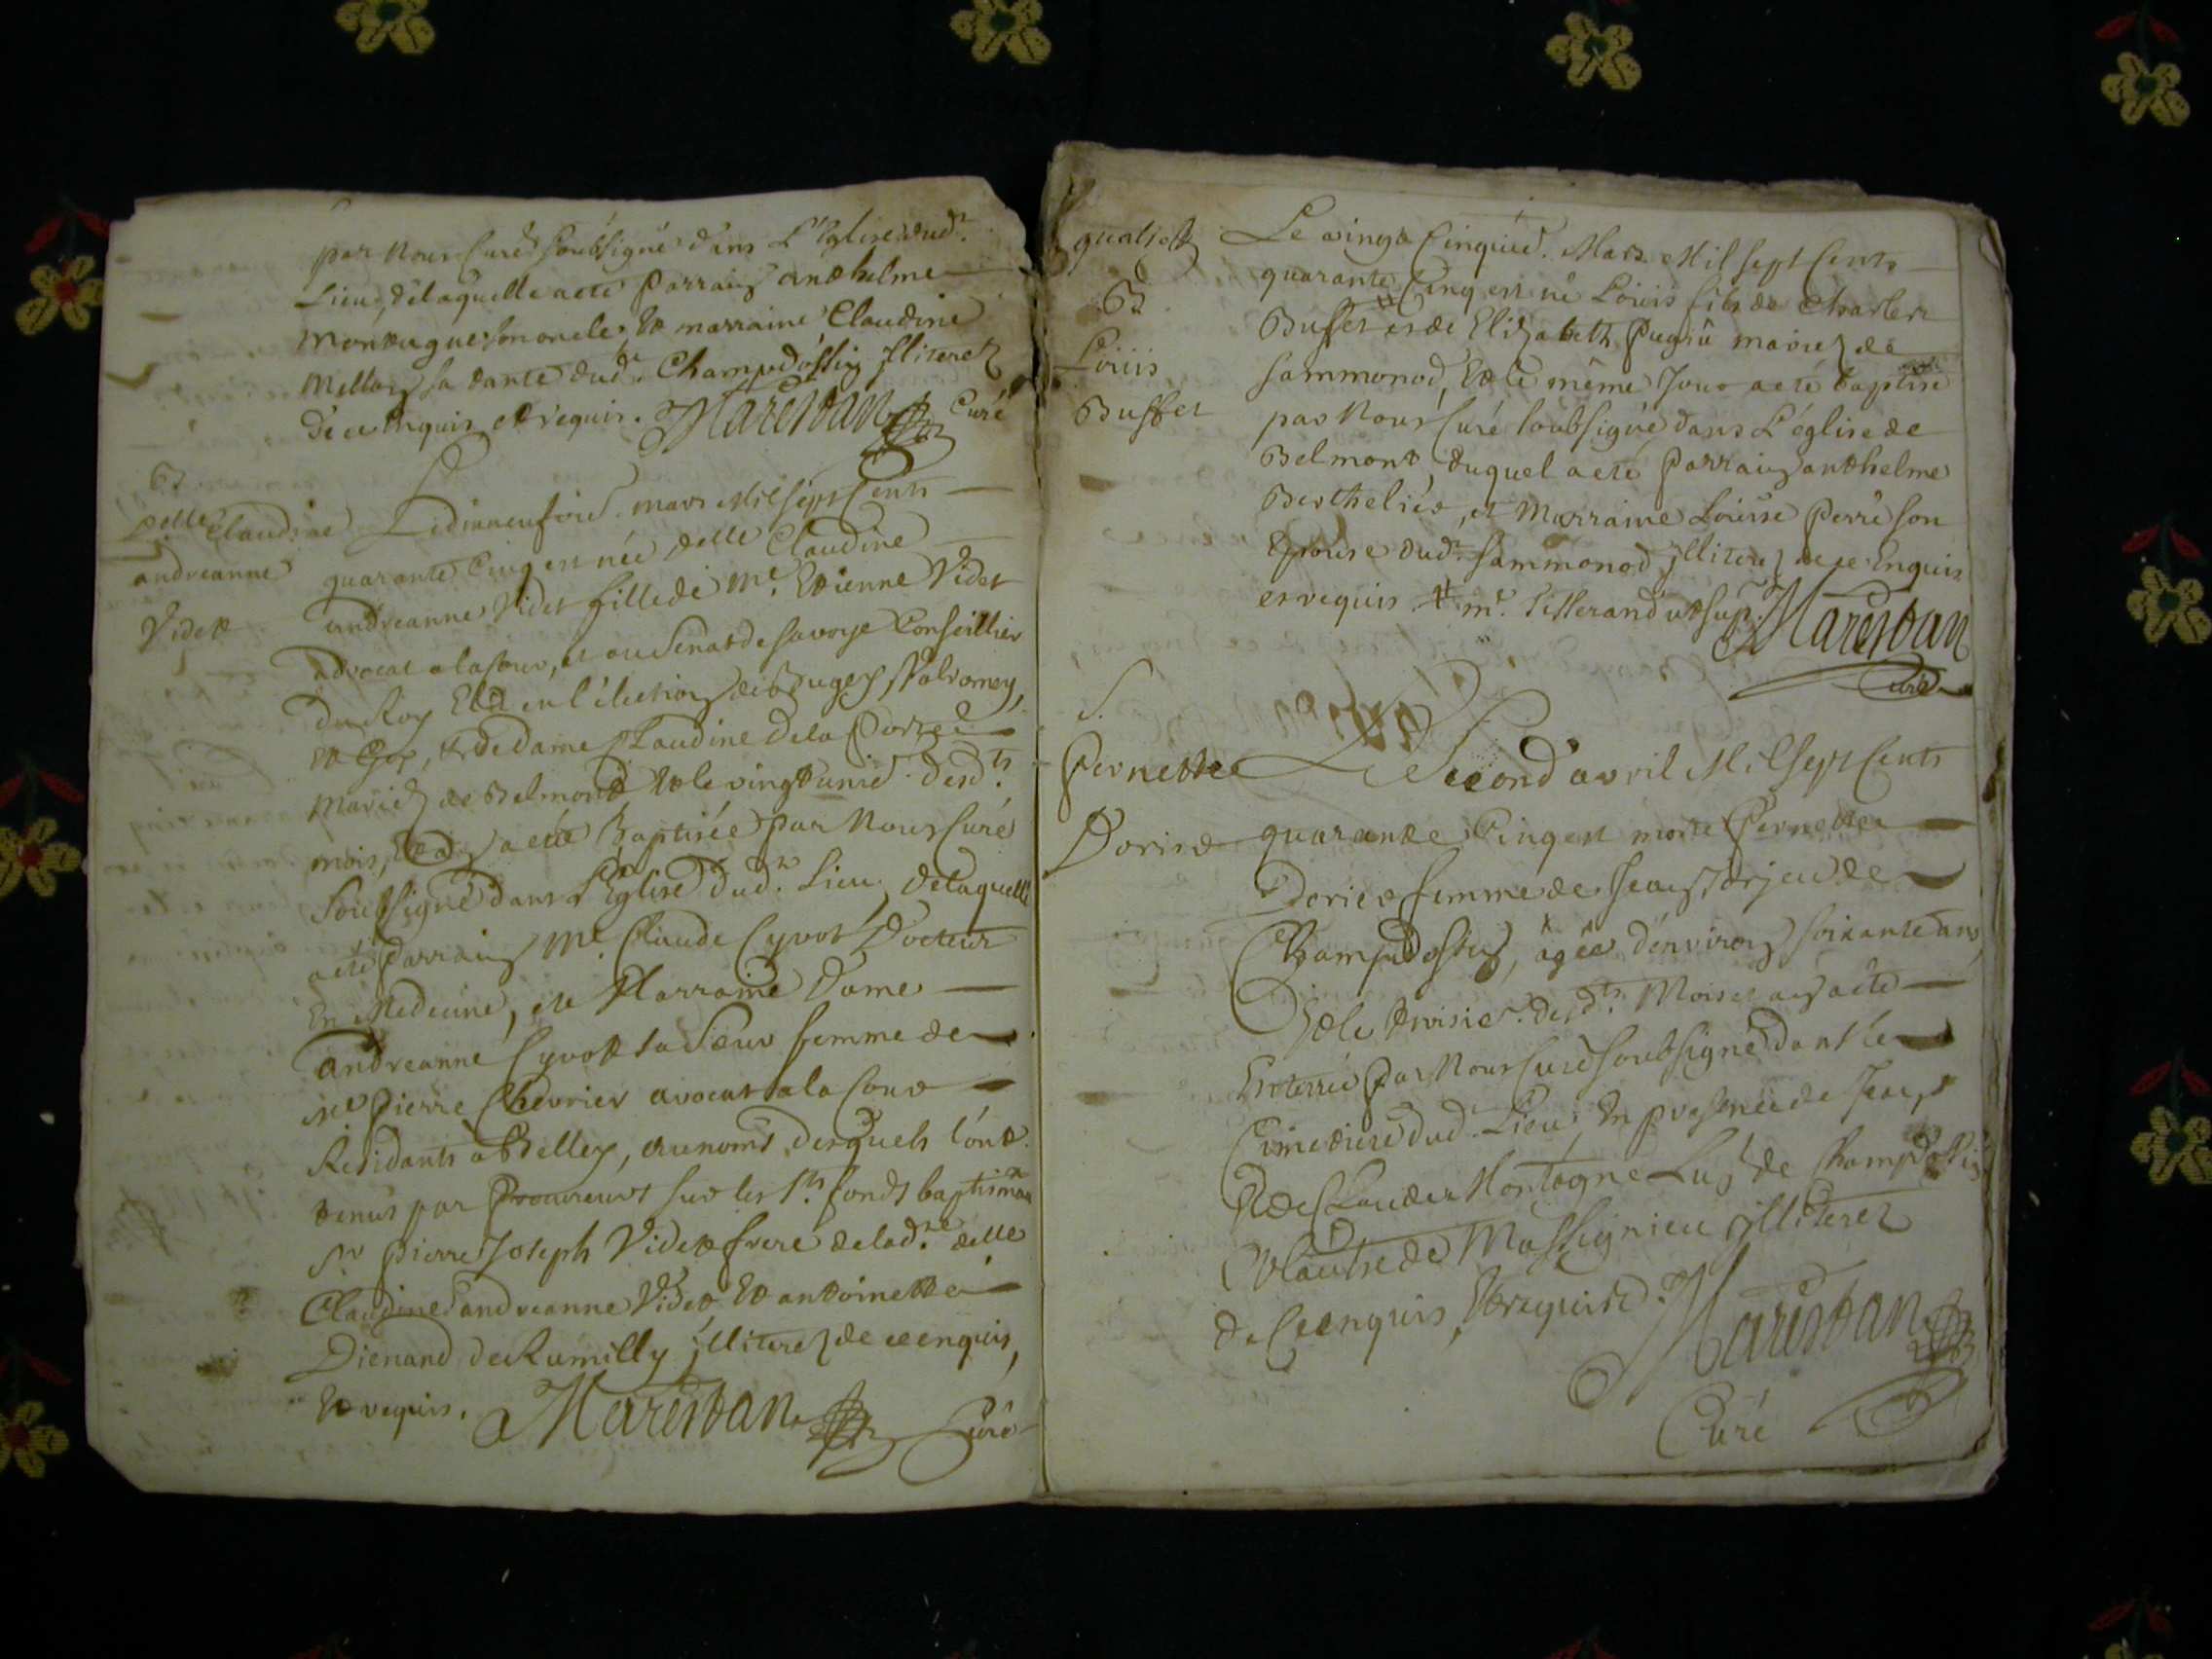 par Nous Curé soubsigné dans L'Eglise dud.t
Lieu, delaquelle a eté Parrain anthelme
Montugue son oncle, Et marraine Claudine
Mellon sa tante dud.t Champdossin jlliterez
de ce Enquis et requis. Marestan Curé
B
D.elle Claudine
andreanne
Videt
Le dixneufvie. mars Mil sept Cents
quarante Cinq est née delle Claudine
andreanne Videt fille de Me. Etienne Videt
advocat a la Cour, et au Senat de Savoye Conseillier
du Roy Elû en l'élection de Bugey, Valromey,
et Gex, et de dame Claudine Dela Porte
mariez de Belmont et le vingt unie. desd.ts
mois, et an a eté Baptisée par Nous Curé
Soubsigné dans L'Eglise dud.t Lieu, delaquelle
a eté Parrain Me. Claude Cyvot Docteur
En Medecine, et Marraine Dame
andreanne Cyvot sa Sœur femme de
Me. Pierre Chevrier avocat a la Cour
Residants à Belley, au noms desquels l'ont
tenus par Procureurs sur les Sts. fonds baptismaux
Sr. Pierre Joseph Videt frere de lad.te delle
Claudine andreanne Videt Et antoinette
Dienand de Rumilly jlliterez de ce enquis,
Et requis. Marestan Curé
B
Louis
Buffet
Le vingt Cinquie. Mars Mil sept Cents
quarante Cinq est né Louis fils de Charles
Buffet et de Elizabeth mariez de
Sammonod, Et le même Jour a eté baptisé
par Nous Curé soubsigné dans L'église de
Belmont, duquel a eté Parrain anthelme
Berthelier, et Marraine Louise Perré son
Epouse dud.t Sammonod jlliterez de ce Enquis
et requis. # me. Tisserand Marestan
Curé
S.
Pernette
Dorier
Le Second avril Mil sept Cents
quarante Cinq est morte Pernette
Dorier femme de Jean de
Champdossin, agée d'environ soixante ans,
Et le troisie. desd.ts Mois et an a eté
Enterrée Par Nous Curé Soubsigné dans le
Cimetiere dud.t Lieu, En presence de Jean,
Et de Claude Montagne L'un de Champdossin
Et l'autre de Massignieu jlliterez
de Ce enquis, Et requis. Marestan
Curé